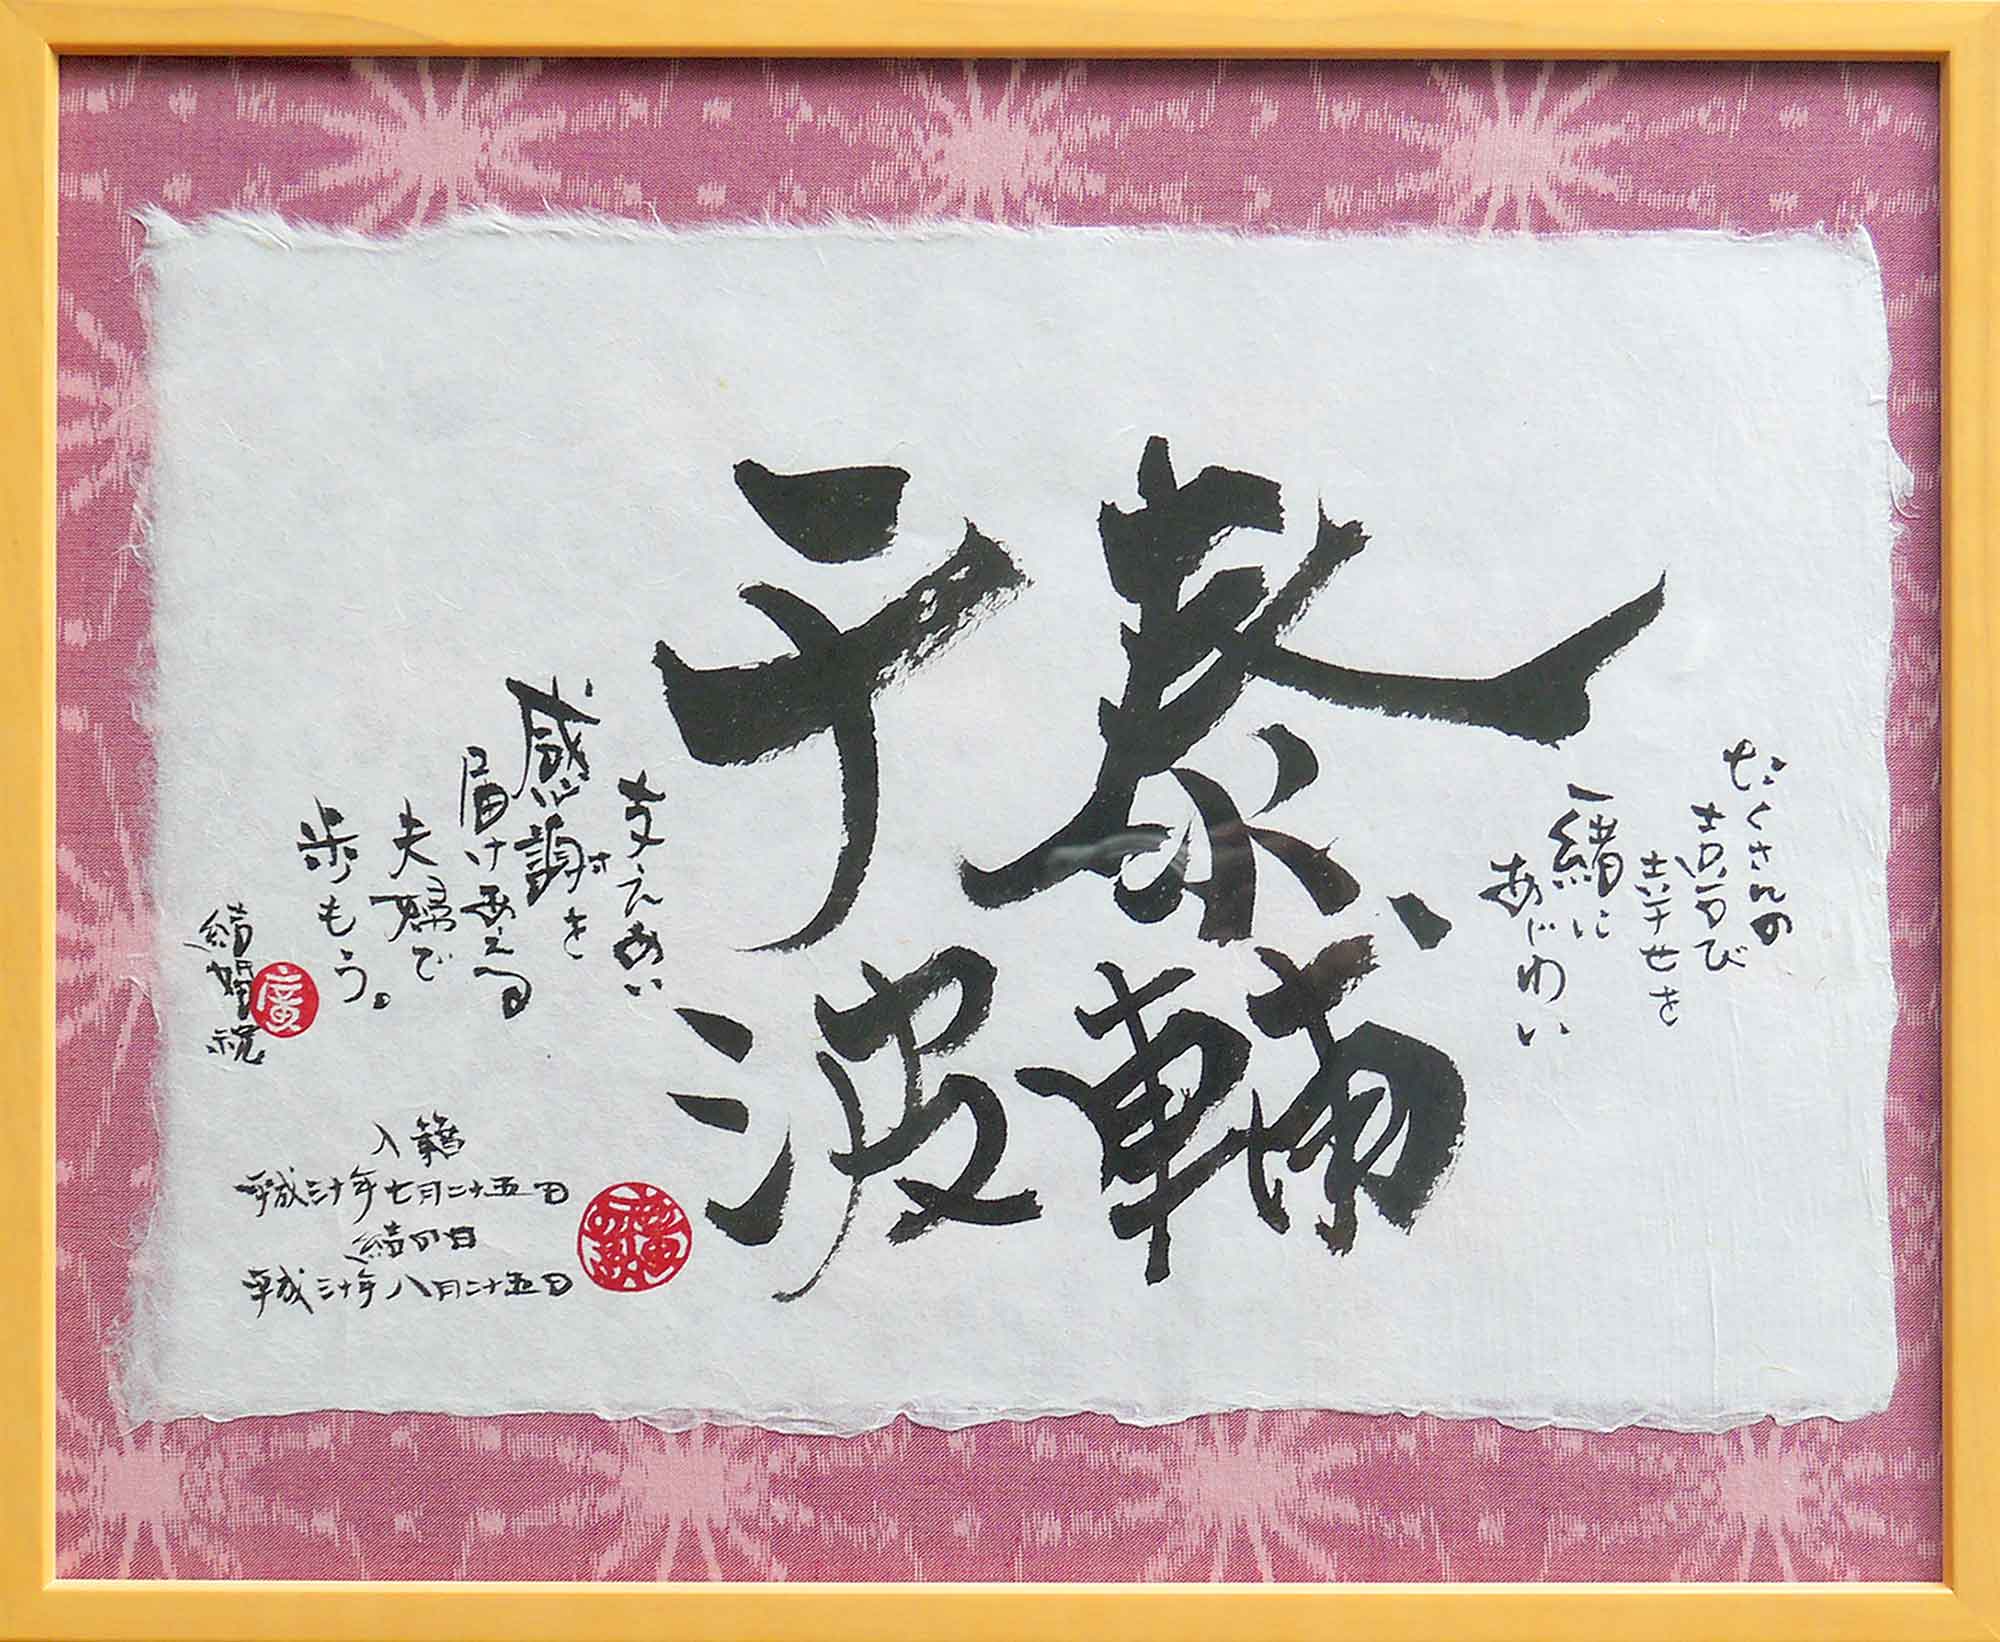 たくさんの
喜び
幸せを
一緒に
あじわい
泰輔
千波
支えあい
感謝を
届けあえる
夫婦で
歩もう。
結婚祝
廣
入籍
平成三十年七月二十五日
結の日
平成三十年八月二十五日